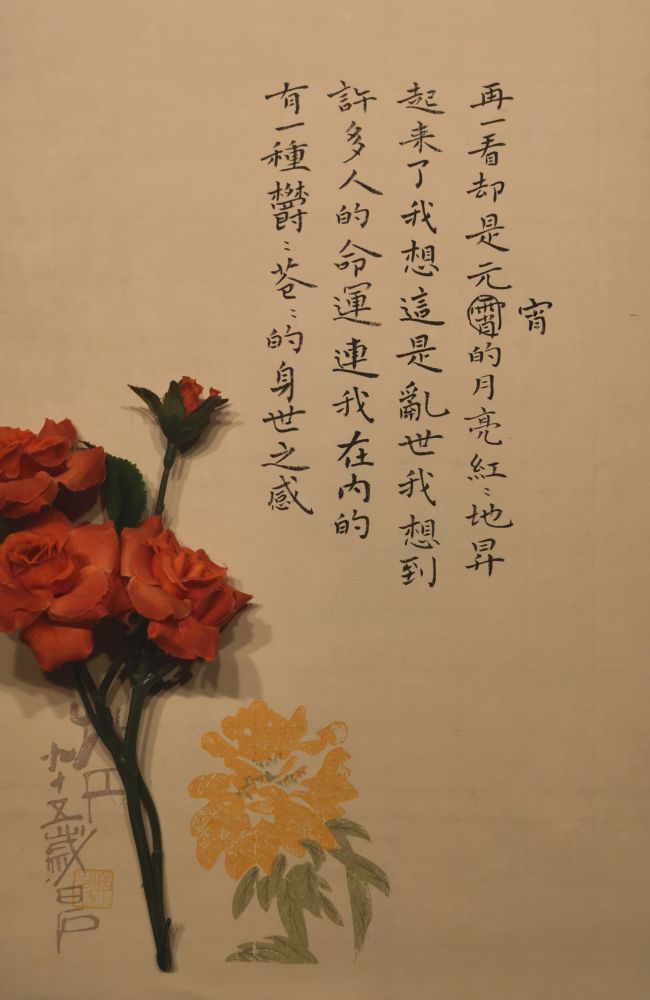 宵
再一看却是元霄的月亮紅〻地昇
起来了我想這是亂世我想到
許多人的命運連我在内的
有一種鬱〻苍〻的身世之感
丹
九十五歲